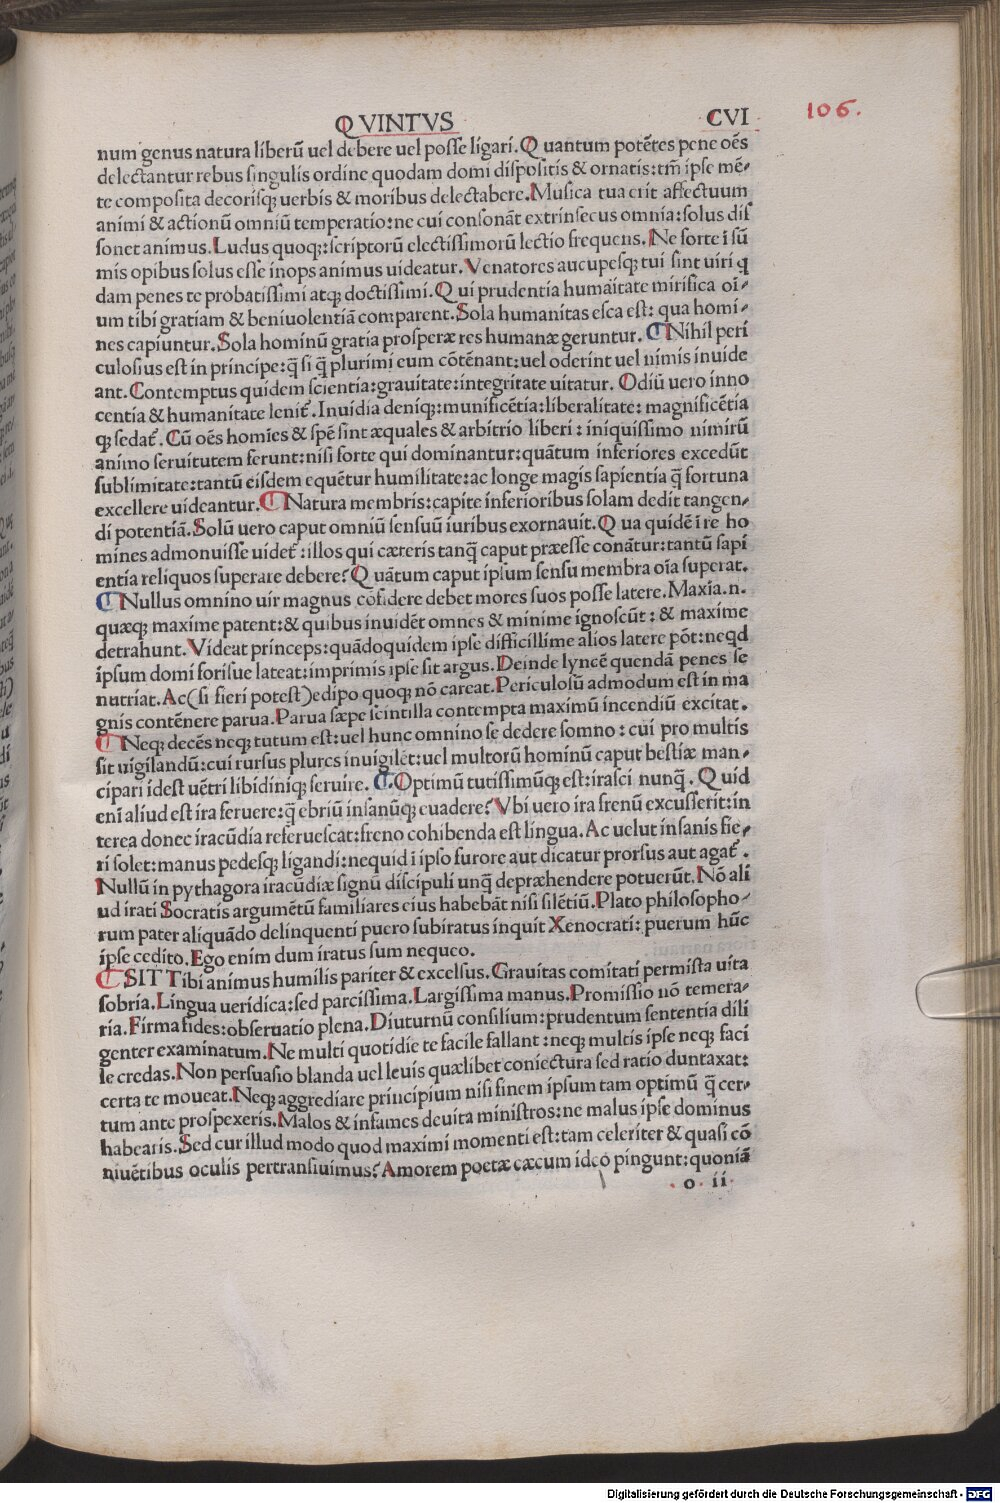 QVINTVS CVI 106.
num genus natura liberū uel debere uel posse ligari. Quantum potētes pene oēs
delectantur rebus singulis ordine quodam domi dispositis & ornatis:tm̄ ipse mē-
te composita decorisq; uerbis & moribus delectabere. Musica tua erit affectuum
animi & actionū omniū temperatio:ne cui consonāt extrinsecus omnia:solus dis
sonet animus. Ludus quoq;:scriptorū electissimorū lectio frequens. Ne forte ī sū
mis opibus solus esse inops animus uideatur. Venatores aucupesq; tui sint uiri q
dam penes te probatissimi atq; doctissimi. Qui prudentia humāitate mirifica oī-
um tibi gratiam & beniuolentiā comparent. Sola humanitas esca est: qua homi-
nes capiuntur. Sola hominū gratia prosperæ res humanæ geruntur. ¶ Nihil peri
culosius est in principe:q̄ si q̄ plurimi eum cōtēnant:uel oderint uel nimis inuide
ant. Contemptus quidem scientia:grauitate:integritate uitatur. Odiū uero inno
centia & humanitate lenit̄. Inuidia deniq;:munificētia:liberalitate: magnificētia
q; sedat̄. Cū oēs homīes & spē sint æquales & arbitrio liberi: iniquissimo nimirū
animo seruitutem ferunt:nisi forte qui dominantur:quātum inferiores excedūt
sublimitate:tantū eisdem equētur humilitate:ac longe magis sapientia q̄ fortuna
excellere uideantur. ¶ Natura membris:capite inferioribus solam dedit tangen-
di potentiā. Solū uero caput omniū sensuū iuribus exornauit. Qua quidē ī re ho
mines admonuisse uidet̄:illos qui cæteris tanq̄ caput præesse conātur:tantū sapi
entia reliquos superare debere? Quātum caput ipsum sensu membra oīa superat.
¶ Nullus omnino uir magnus cōfidere debet mores suos posse latere. Maxīa.n.
quæq; maxime patent:& quibus inuidēt omnes & minime ignoscūt: & maxime
detrahunt. Videat princeps:quādoquidem ipse difficillime alios latere pōt:neqd
ipsum domi forisue lateat:imprimis ipse sit argus. Deinde lyncē quendā penes se
nutriat. Ac(si fieri potest)edipo quoq; nō careat. Periculosū admodum est in ma
gnis contēnere parua. Parua sæpe scintilla contempta maximū incendiū excitat.
¶ Neq; decēs neq; tutum est:uel hunc omnino se dedere somno: cui pro multis
sit uigilandū:cui rursus plures inuigilēt:uel multorū hominū caput bestiæ man-
cipari idest uētri libidiniq; seruire. ¶ Optimū tutissimūq; est:irasci nunq̄. Quid
enī aliud est ira feruere:q̄ ebriū insanūq; euadere? Vbi uero ira frenū excusserit:in
terea donec iracūdia referuescat:freno cohibenda est lingua. Ac uelut insanis fie-
ri solet:manus pedesq; ligandi:nequid ī ipso furore aut dicatur prorsus aut agat̄.
Nullū in pythagora iracūdiæ signū discipuli unq̄ depræhendere potuerūt. Nō ali
ud irati Socratis argumētū familiares eius habebāt nisi silētiū. Plato philosopho-
rum pater aliquādo delinquenti puero subiratus inquit Xenocrati: puerum hūc
ipse cedito. Ego enim dum iratus sum nequeo.
¶ SIT Tibi animus humilis pariter & excelsus. Grauitas comitati permista uita
sobria. Lingua ueridica:sed parcissima. Largissima manus. Promissio nō temera-
ria. Firma fides:obseruatio plena. Diuturnū consilium:prudentum sententia dili
genter examinatum. Ne multi quotidie te facile fallant:neq; multis ipse neq; faci
le credas. Non persuasio blanda uel leuis quælibet coniectura sed ratio duntaxat:
certa te moueat. Neq; aggrediare principium nisi finem ipsum tam optimū q̄ cer-
tum ante prospexeris. Malos & infames deuita ministros:ne malus ipse dominus
habearis. Sed cur illud modo quod maximi momenti est:tam celeriter & quasi cō
niuētibus oculis pertransiuimus? Amorem poetæ cæcum ideo pingunt:quoniā
. o . ii .
Digitalisierung gefördert durch die Deutsche Forschungsgemeinschaft - DFG